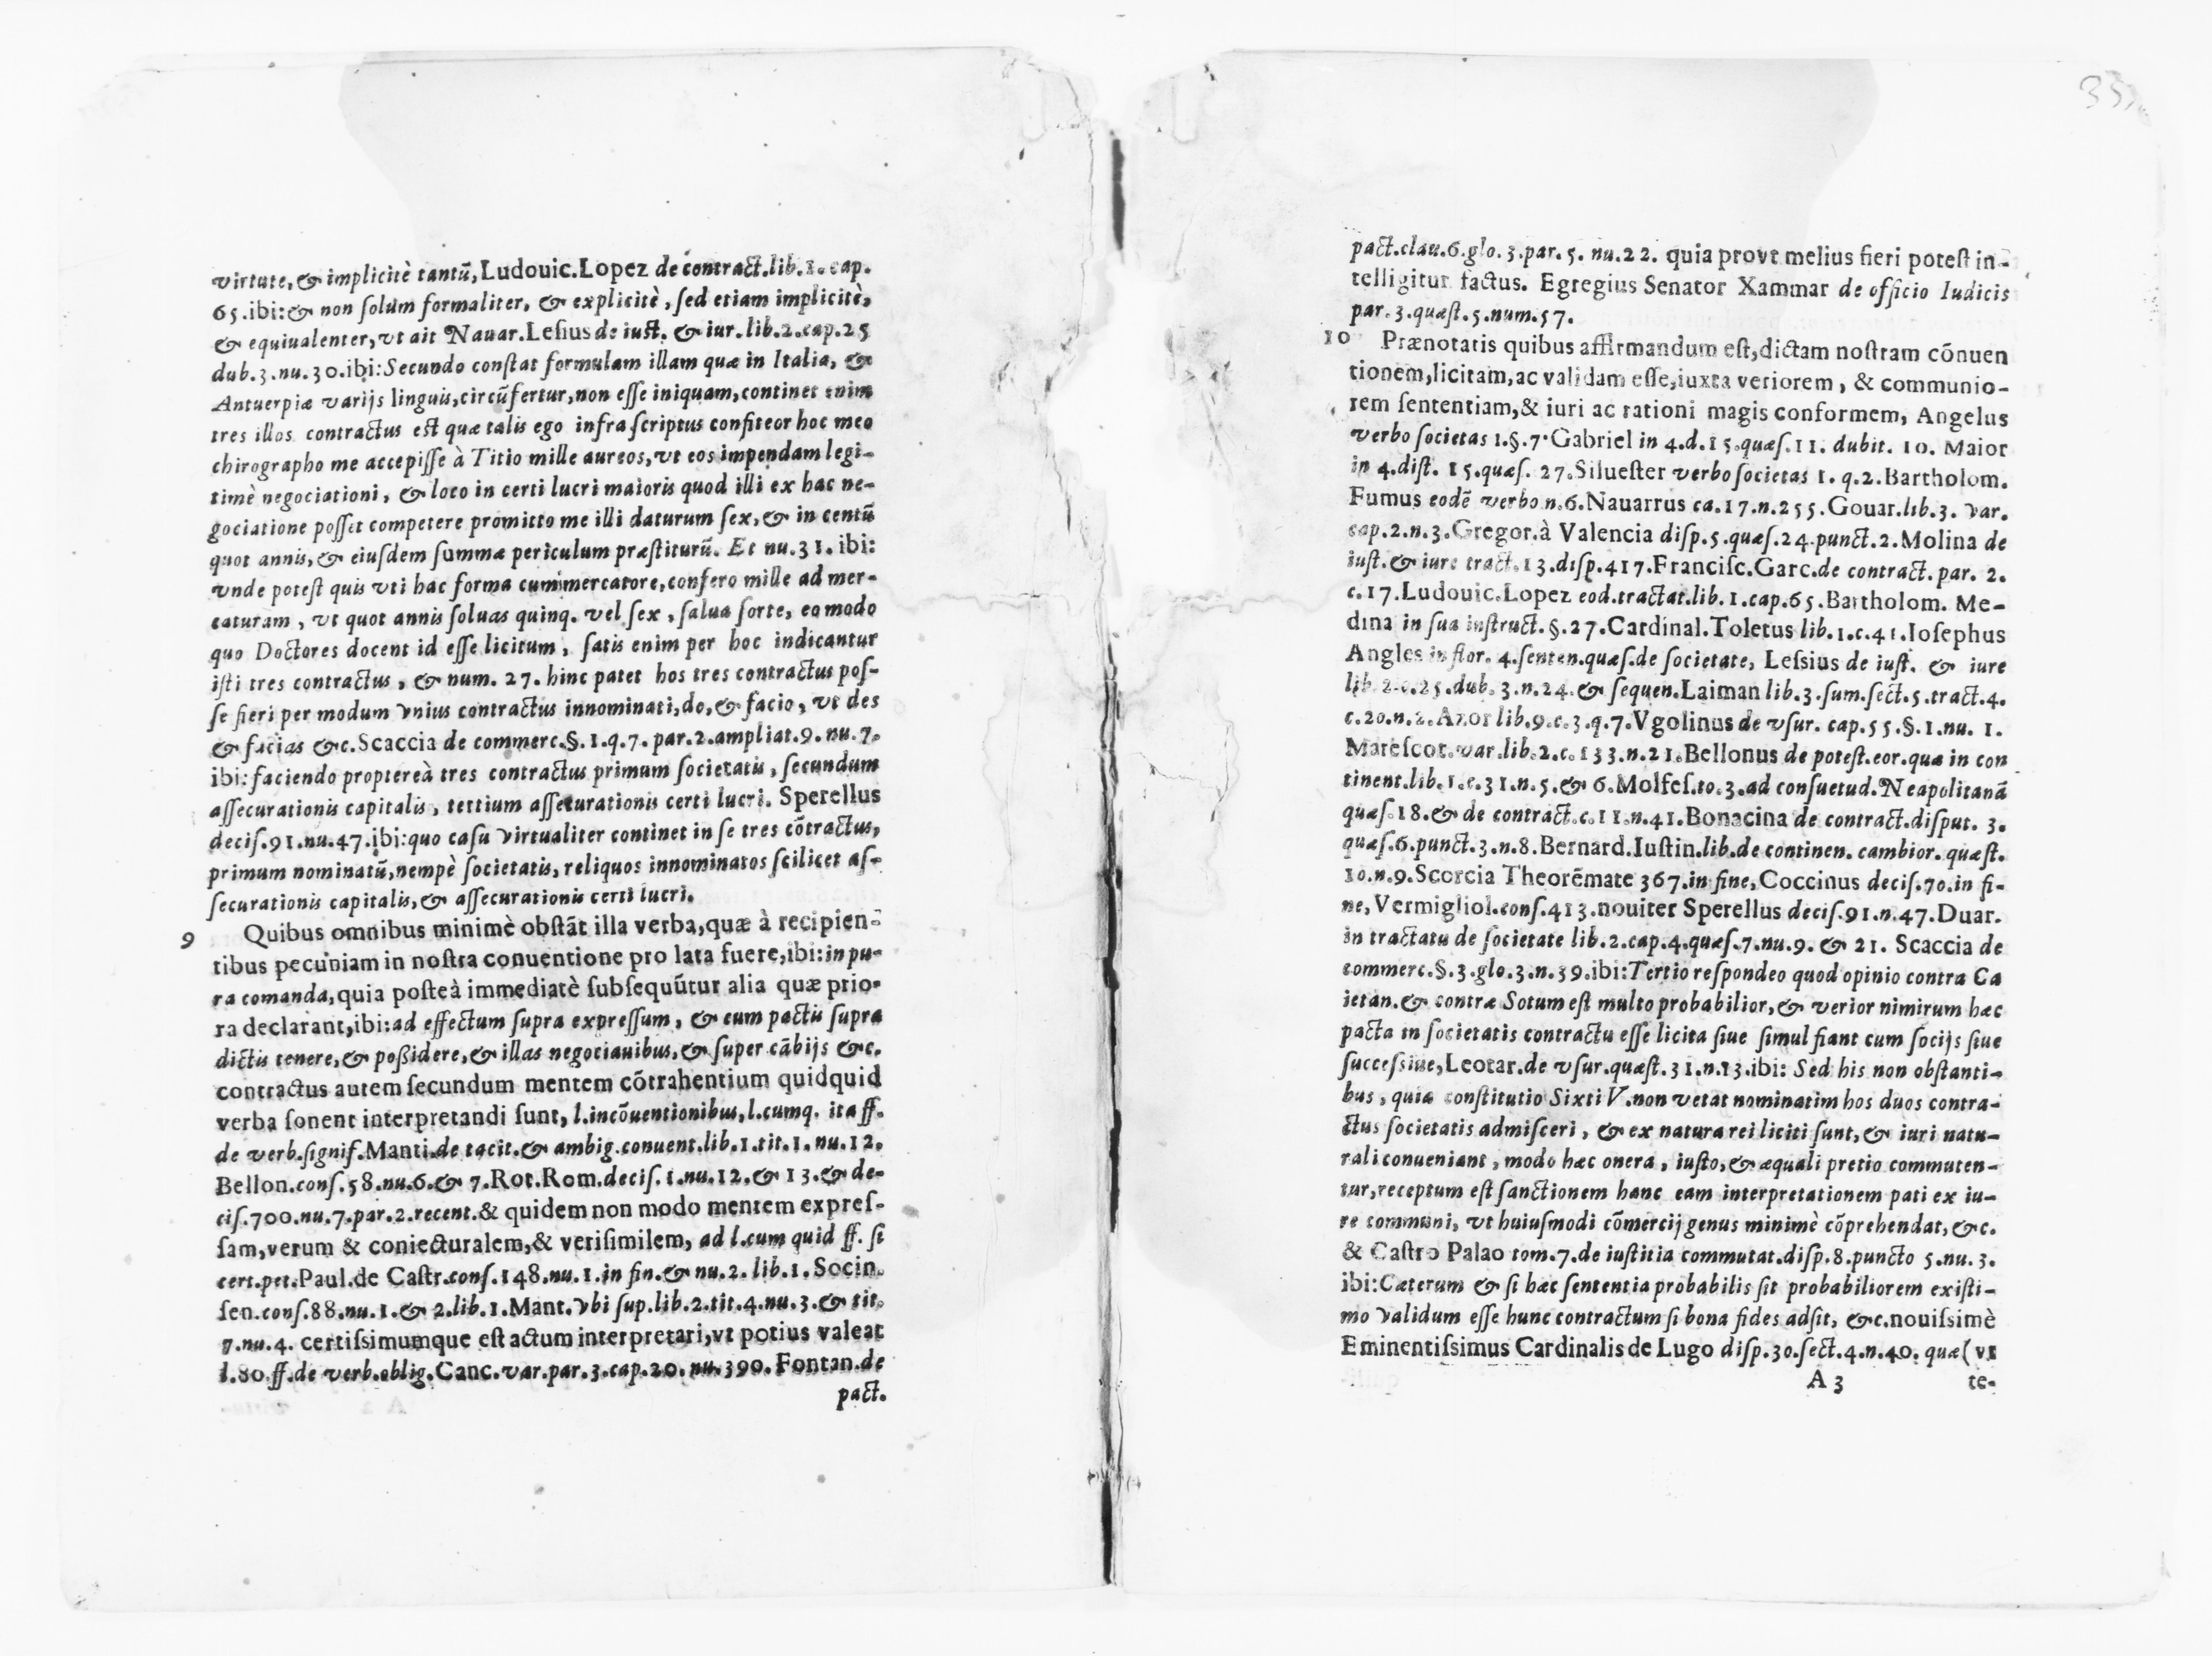 virtute, & implicitè tantũ, Ludouic. Lopez de contract. lib. 1. cap.
65. ibi: & non ſolùm formaliter, & explicitè, ſed etiam implicitè,
& equiualenter, vt ait Nauar. Leſius de iuſt. & iur. lib. 2. cap. 25
dub. 3. nu. 30. ibi: Secundo conſtat formulam illam quæ in Italia, &
Antuerpiæ varijs linguis, circũfertur, non eſſe iniquam, continet enim
tres illos contractus eſt quæ talis ego infraſcriptus confiteor hoc meo
chirographo me accepiſſe à Titio mille aureos, vt eos impendam legi-
timè negociationi, & loco in certi lucri maioris quod illi ex hac ne-
gociatione poſſet competere promitto me illi daturum ſex, & in centũ
quot annis, & eiuſdem ſummæ periculum præſtiturũ. Et nu. 31. ibi:
vnde poteſt quis vti hac forma cum mercatore, confero mille ad mer-
caturam, vt quot annis ſoluas quinq. vel ſex, ſalua ſorte, eo modo
quo Doctores docent id eſſe licitum, ſatis enim per hoc indicantur
iſti tres contractus, & num. 27. hinc patet hos tres contractus poſ-
ſe fieri per modum vnius contractus innominati, do, & facio, vt des
& facias &c. Scaccia de commerc. §. 1. q. 7. par. 2. ampliat. 9. nu. 7.
ibi: faciendo proptereà tres contractus primum ſocietatis, ſecundum
aſſecurationis capitalis, tertium aſſecurationis certi lucri. Sperellus
deciſ. 91. nu. 47. ibi: quo caſu virtualiter continet in ſe tres cõtractus,
primum nominatũ, nempè ſocietatis, reliquos innominatos ſcilicet aſ-
ſecurationis capitalis, & aſſecurationis certi lucri.
9 Quibus omnibus minimè obſtãt illa verba, quæ à recipien-
tibus pecuniam in noſtra conuentione pro lata fuere, ibi: in pu-
ra comanda, quia poſteà immediatè ſubſequũtur alia quæ prio-
ra declarant, ibi: ad effectum ſupra expreſſum, & cum pactis ſupra
dictis tenere, & poßidere, & illas negociauibus, & ſuper cãbijs &c.
contractus autem ſecundum mentem cõtrahentium quidquid
verba ſonent interpretandi ſunt, l. in cõuentionibus, l. cumq. ita ff.
de verb. ſignif. Manti. de tacit. & ambig. conuent. lib. 1. tit. 1. nu. 12.
Bellon. conſ. 58. nu. 6. & 7. Rot. Rom. deciſ. 1. nu. 12. & 13. & de-
ciſ. 700. nu. 7. par. 2. recent. & quidem non modo mentem expreſ-
ſam, verum & coniecturalem, & veriſimilem, ad l. cum quid ff. ſi
cert. pet. Paul. de Caſtr. conſ. 148. nu. 1. in fin. & nu. 2. lib. 1. Socin.
ſen. conſ. 88. nu. 1. & 2. lib. 1. Mant. vbi ſup. lib. 2. tit. 4. nu. 3. & tit.
7. nu. 4. certiſsimumque eſt actum interpretari, vt potius valeat
l. 80. ff. de verb. oblig. Canc. var. par. 3. cap. 20. nu. 390. Fontan. de
pact.
pact. clau. 6. glo. 3. par. 5. nu. 22. quia provt melius fieri poteſt in-
telligitur factus. Egregius Senator Xammar de officio Iudicis
par. 3. quæſt. 5. num. 57.
10 Prænotatis quibus affirmandum eſt, dictam noſtram cõuen
tionem, licitam, ac validam eſſe, iuxta veriorem, & communio-
rem ſententiam, & iuri ac rationi magis conformem, Angelus
verbo ſocietas 1. §. 7. Gabriel in 4. d. 15. quæſ. 11. dubit. 10. Maior
in 4. diſt. 15. quæſ. 27. Silueſter verbo ſocietas 1. q. 2. Bartholom.
Fumus eodẽ verbo n. 6. Nauarrus ca. 17. n. 255. Gouar. lib. 3. var.
cap. 2. n. 3. Gregor. à Valencia diſp. 5. quæſ. 24. punct. 2. Molina de
iuſt. & iure tract. 13. diſp. 417. Franciſc. Garc. de contract. par. 2.
c. 17. Ludouic. Lopez eod. tractat. lib. 1. cap. 65. Bartholom. Me-
dina in ſua inſtruct. §. 27. Cardinal. Toletus lib. 1. c. 41. Ioſephus
Angles in flor. 4. ſenten. quæſ. de ſocietate, Leſsius de iuſt. & iure
lib. 2. c. 25. dub. 3. n. 24. & ſequen. Laiman lib. 3. ſum. ſect. 5. tract. 4.
c. 20. n. 2. Azor lib. 9. c. 3. q. 7. Vgolinus de vſur. cap. 55. §. 1. nu. 1.
Mareſcot. var. lib. 2. c. 133. n. 21. Bellonus de poteſt. eor. quæ in con
tinent. lib. 1. c. 31. n. 5. & 6. Molfeſ. to. 3. ad conſuetud. Neapolitanã
quæſ. 18. & de contract. c. 11. n. 41. Bonacina de contract. diſput. 3.
quæſ. 6. punct. 3. n. 8. Bernard. Iuſtin. lib. de continen. cambior. quæſt.
10. n. 9. Scorcia Theorẽmate 367. in fine, Coccinus deciſ. 70. in fi-
ne, Vermigliol. conſ. 413. nouiter Sperellus deciſ. 91. n. 47. Duar.
in tractatu de ſocietate lib. 2. cap. 4. quæſ. 7. nu. 9. & 21. Scaccia de
commerc. §. 3. glo. 3. n. 39. ibi: Tertio reſpondeo quod opinio contra Ca
ietan. & contra Sotum eſt multo probabilior, & verior nimirum hæc
pacta in ſocietatis contractu eſſe licita ſiue ſimul fiant cum ſocijs ſiue
ſucceſsiue, Leotar. de vſur. quæſt. 31. n. 13. ibi: Sed his non obſtanti-
bus, quia conſtitutio Sixti V. non vetat nominatim hos duos contra-
ctus ſocietatis admiſceri, & ex natura rei liciti ſunt, & iuri natu-
rali conueniant, modo hæc onera, iuſto, & æquali pretio commuten-
tur, receptum eſt ſanctionem hanc eam interpretationem pati ex iu-
re communi, vt huiuſmodi cõmercij genus minimè cõprehendat, &c.
& Caſtro Palao tom. 7. de iuſtitia commutat. diſp. 8. puncto 5. nu. 3.
ibi: Cæterum & ſi hæc ſententia probabilis ſit probabiliorem exiſti-
mo validum eſſe hunc contractum ſi bona fides adſit, &c. nouiſsimè
Eminentiſsimus Cardinalis de Lugo diſp. 30. ſect. 4. n. 40. quæ (vt
A 3 te-